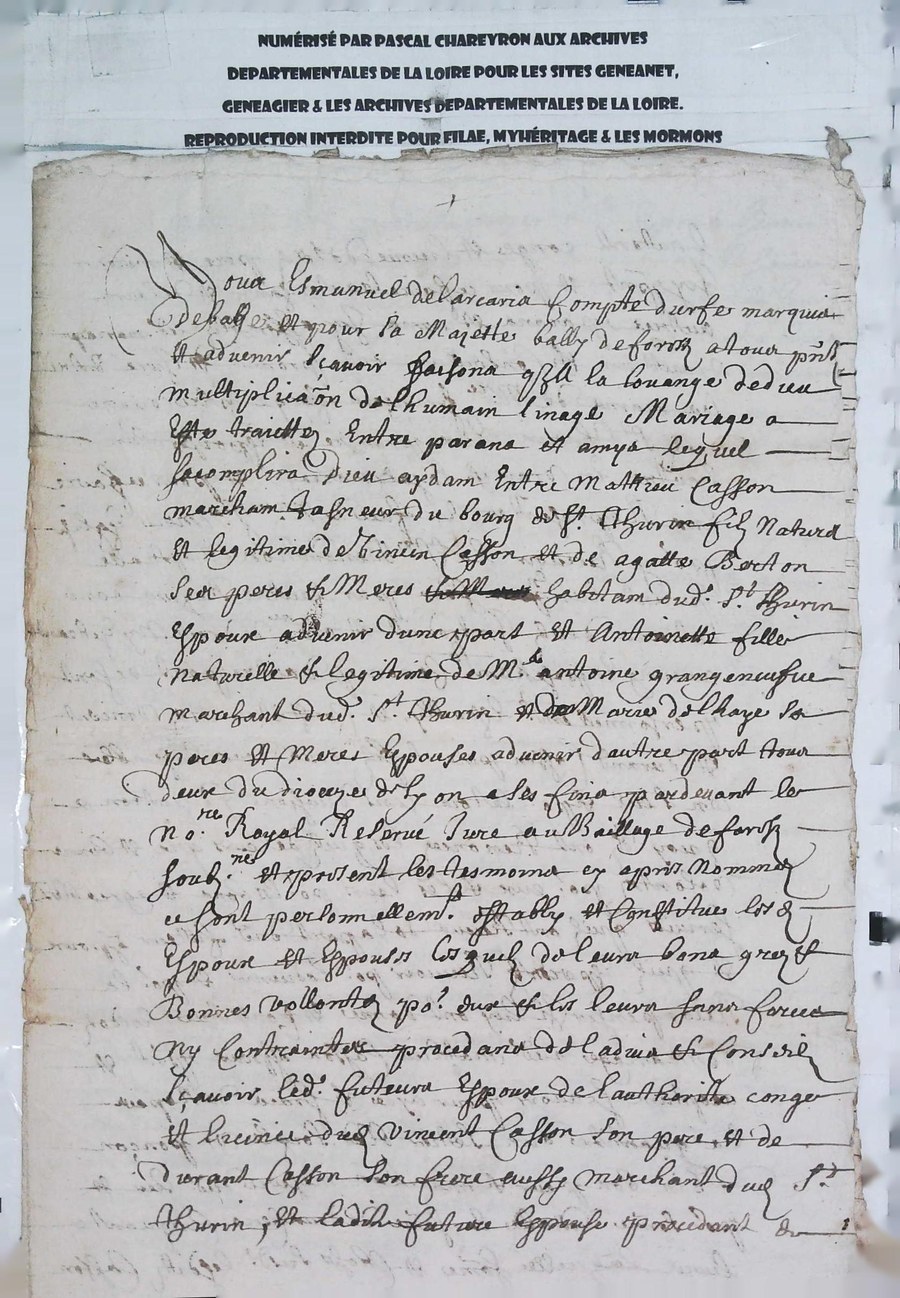 NUMÉRISÉ PAR PASCAL CHAREYRON AUX ARCHIVES
DEPARTEMENTALES DE LA LOIRE POUR LES SITES GENEANET,
GENEAGIER & LES ARCHIVES DEPARTEMENTALES DE LA LOIRE.
REPRODUCTION INTERDITE POUR FILAE, MYHÉRITAGE & LES MORMONS
Nous Esmanuel de Lascaris Compte durfe marquis
de et pour sa Majeste bally de forestz a tous pñtz
et advenir sçavoir faisons qua la louange de dieu
multiplicãon de lhumain linage Mariage a
este traicttez Entre parans et amys lequel
sacomplira Dieu aydam Entre Mathieu Casson
marcham du bourg de St Thurin filz Naturel
et legitime de Vincin Casson et de agatte Berton
ses peres & Meres habitam dud. St Thurin
Espoux advenir dune part Et Antoinette fille
Naturelle & legitime de Me antoine grangeneufve
marchant dud. St Thurin et de Marie delhaye ses
peres et Meres Espouses advenir dautre part tous
deux du dioceze de Lyon a ses fins pardevant le
no.re Royal Reservé Jure au Baillage de forestz
soubz.nes et present les tesmoins cy apres Nommez
ce sont personnellemt. establys et Constitue lesd
Espoux et Espouses lesquelz de leurs bons grez &
Bonnes vollontez po.r eux & les leurs sans force
ny Contrainte procedans de ladvis & Conseil
sçavoir led. futeurs Espoux de lauthorite conge
et licence dud Vincent Casson son pere et de
durant Casson son frere aussy marchant dud St
Thurin, et ladite future Espouse procedant de